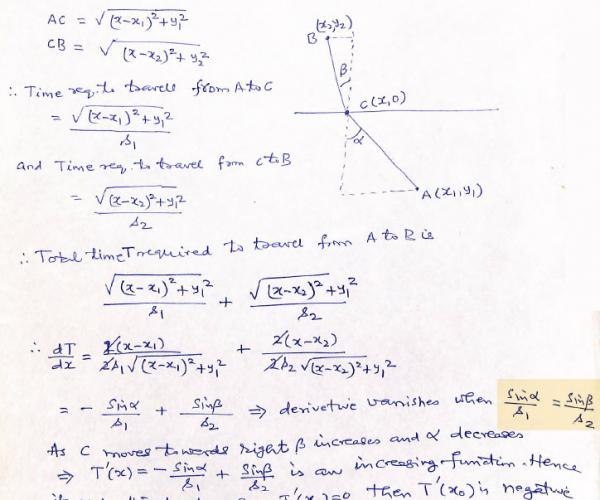 AC = √(x-x₁)²+y₁²
CB = √(x-x₂)²+y₂²
∴ Time req. to travels from A to C
= √(x-x₁)²+y₁² / s₁
and Time req. to travel from C to B
= √(x-x₂)²+y₁² / s₂
B (x₂,y₂)
β
C(x,0)
α
A(x₁,y₁)
∴ Total time T required to travel from A to B is
√(x-x₁)²+y₁² / s₁ + √(x-x₂)²+y₁² / s₂
∴ dT/dx = 2(x-x₁) / 2s₁√(x-x₁)²+y₁² + 2(x-x₂) / 2s₂√(x-x₂)²+y₁²
= - sinα/s₁ + sinβ/s₂ ⇒ derivetive vanishes when sinα/s₁ = sinβ/s₂
As C moves towards right β increases and α decreases
⇒ T'(x) = - sinα/s₁ + sinβ/s₂ is an increasing function. Hence
T'(x₀)=0 then T'(x₀) is negative